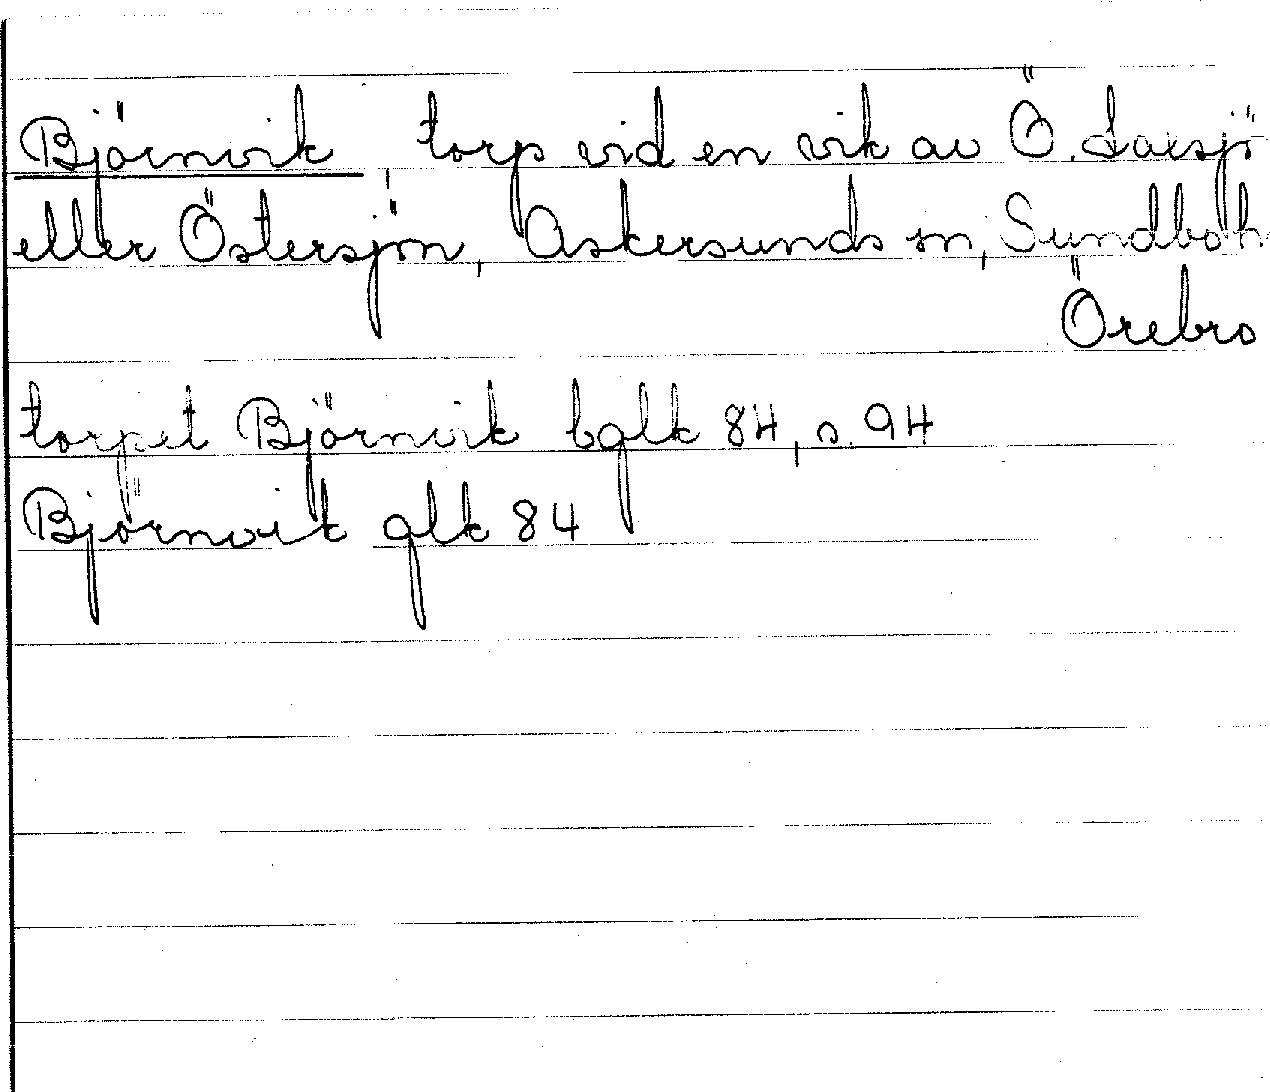 Björnvik, torp vid en vik av Ö. Laxsjö
eller Östersjön, Askersunds sn, Sundbo h
Örebro
torpet Björnvik bglk 84, s. 94
Björnvik glk 84